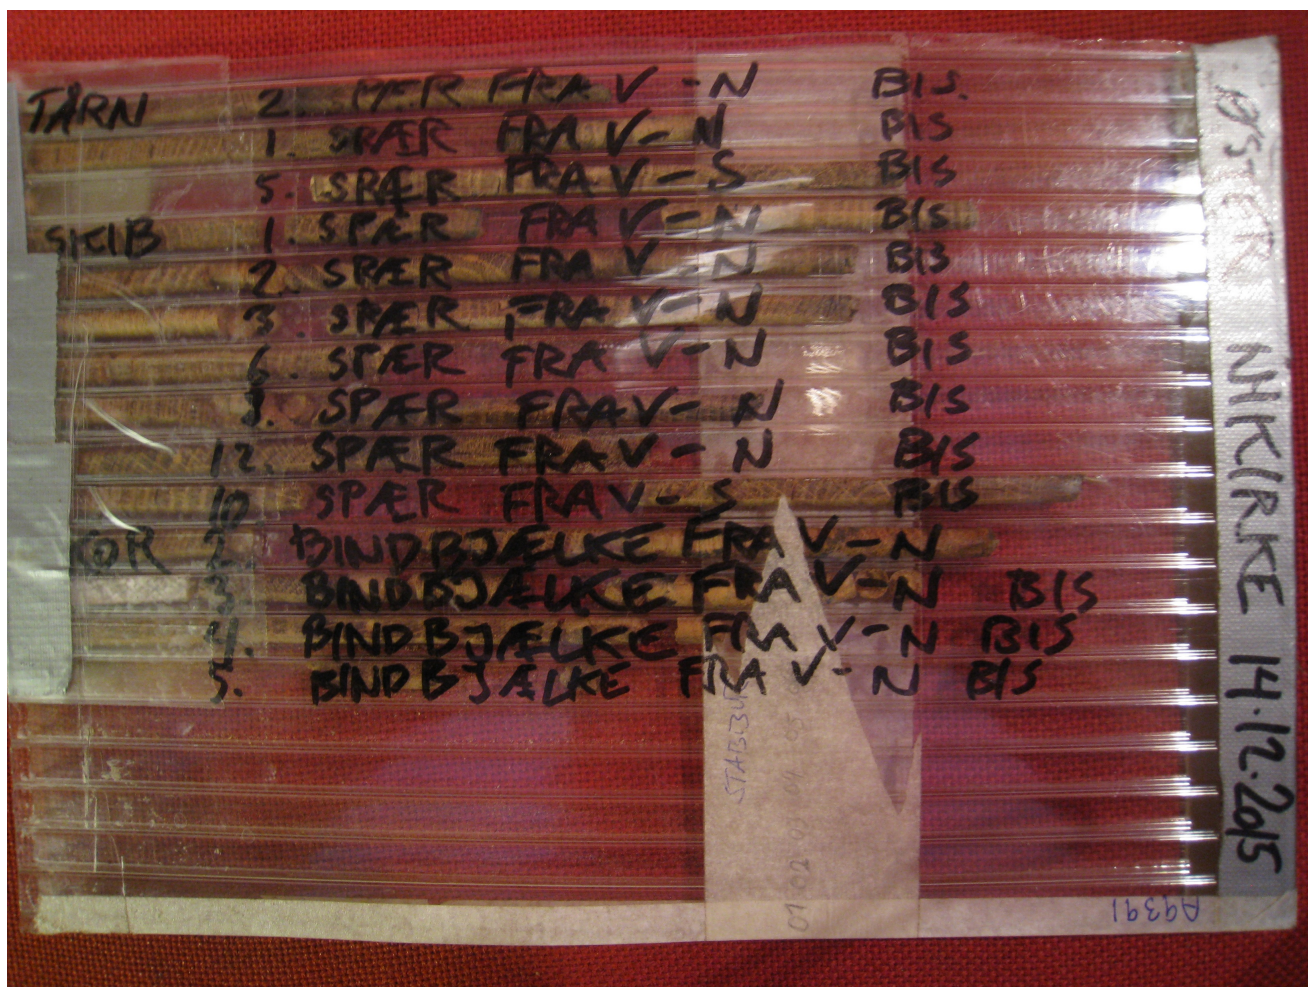 TÅRN 2. SPÆR FRA V-N BIS.
1. SPÆR FRA V-N BIS
5. SPÆR FRA V-S BIS
SKIB 1. SPÆR FRA V-N BIS
2. SPÆR FRA V-N BIS
3. SPÆR FRA V-N BIS
6. SPÆR FRA V-N BIS
SPÆR FRA V-N BIS
12. SPÆR FRA V-N BIS
10 SPÆR FRA V-S BIS
KOR 2. BINDBJÆLKE FRA V-N
3 BINDBJÆLKE FRA V-N BIS
4. BINDBJÆLKE FRA V-N BIS
5. BINDBJÆLKE FRA V-N BIS
14.12.2015
A9391